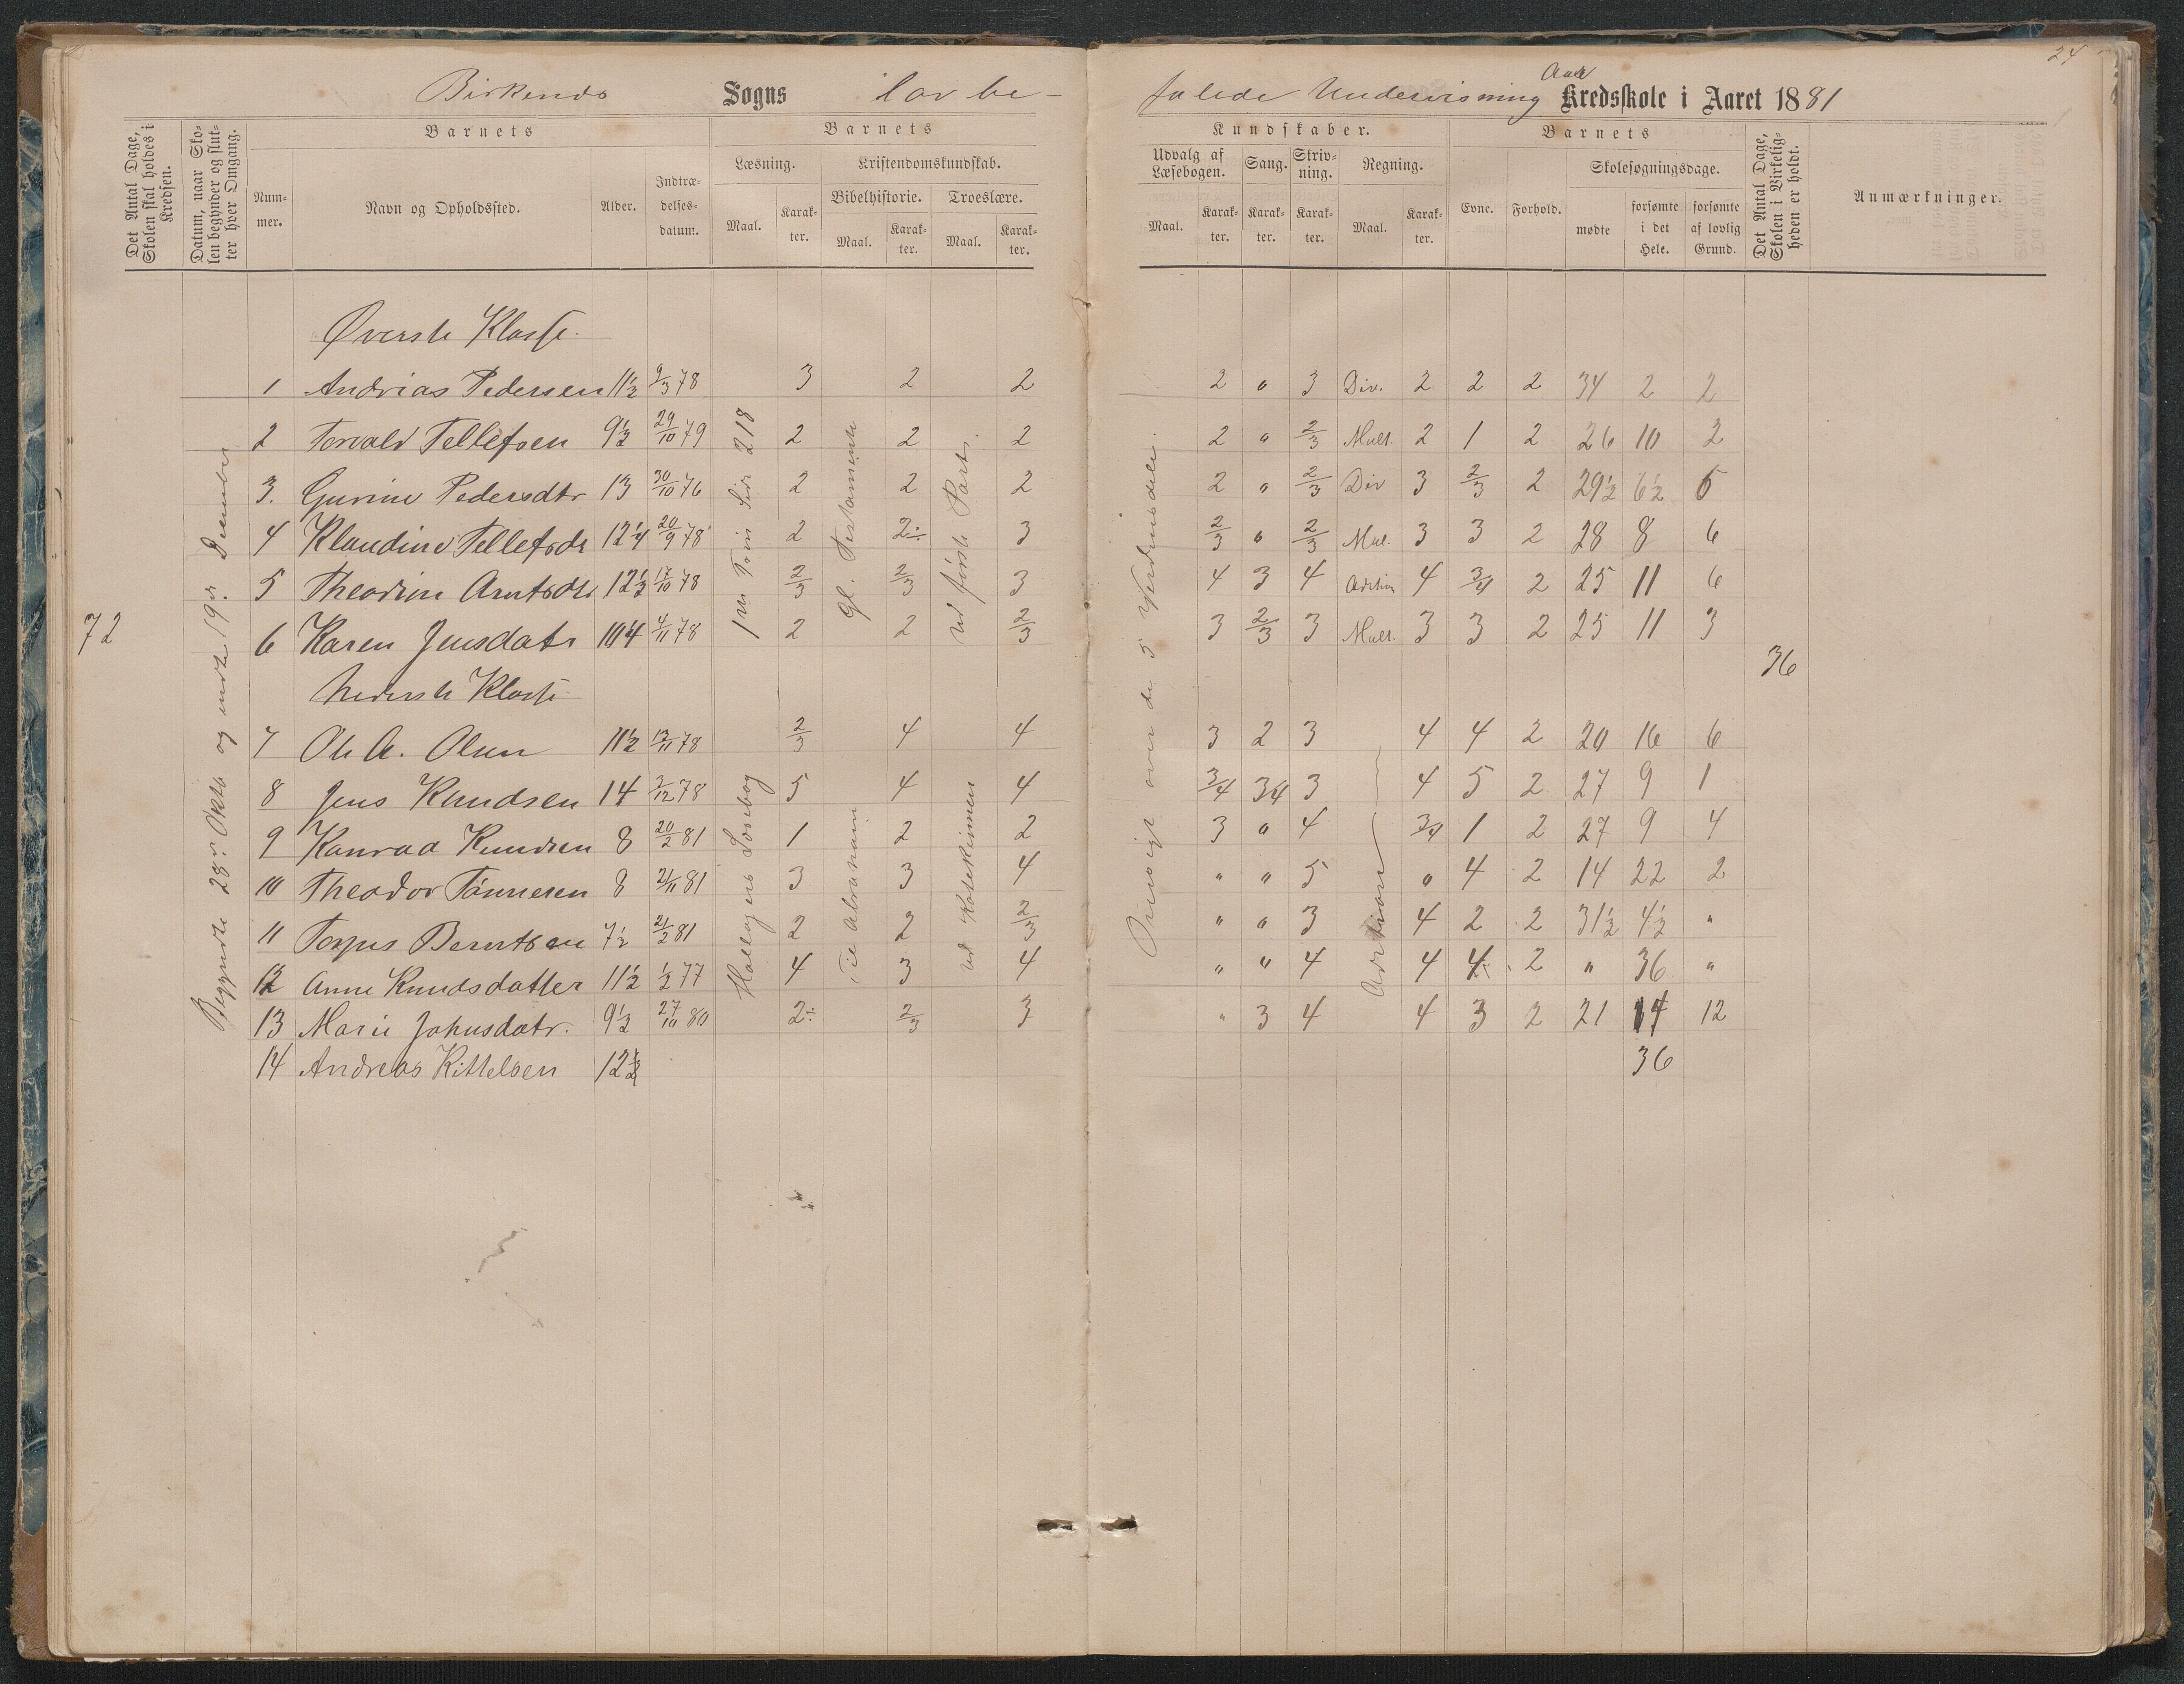 24
Birkends Sogns lov be-
falede Undervisning Aas Kredsskole i Aaret 1881
Det Antal Dage, Skolen skal holdes i Kredsen.
Datum, naar Skolen begynder og slutter hver Omgang.
Barnets
Nummer.
Navn og Opholdssted.
Alder.
Indtrædelsesdatum.
Barnets
Læsning.
Maal.
Karakter.
Kristendomskundskab.
Bibelhistorie.
Maal.
Karakter.
Troeslære.
Maal.
Karakter.
Kundskaber.
Udvalg af Læsebogen.
Maal.
Karakter.
Sang.
Karakter.
Skrivning.
Karakter.
Regning.
Maal.
Karakter.
Barnets
Evne.
Forhold.
Skolesøgningsdage.
mødte
forsømte i det Hele.
forsømte af lovlig Grund.
Det Antal Dage, Skolen i Virkeligheden er holdt.
Anmærkninger.
72
Begyndte 28de Oktb og endte 19de December
Øverste Klasse.
1 Andrias Pedersen 11½ 9/3 78 3 2 2 2 " 3 Div. 2 2 2 34 2 2
2 Torvald Tellefsen 9½ 29/10 79 2 2 2 2 " 2/3 Mult. 2 1 2 26 10 2
3. Gurine Pedersdtr 13 30/10 76 2 2 2 2 " 2/3 Div 3 2/3 2 29½ 6½ 5
4 Klaudine Tellefsdr 12¼ 20/9 78 2 2÷ 3 2/3 " 2/3 Mul. 3 3 2 28 8 6
5 Theodine Arntsdtr 12½ 17/10 78 2/3 2/3 3 4 3 4 Adition 4 3/4 2 25 11 6
6 Karen Jensdatr 10¼ 4/11 78 2 2 2/3 3 2/3 3 Mult. 3 3 2 25 11 3
36
Nederste Klasse
7 Ole A. Olsen 11½ 13/11 78 2/3 4 4 3 2 3 4 4 2 20 16 6
8 Jens Knudsen 14 3/12 78 5 4 4 3/4 3/4 3 4 5 2 27 9 1
9 Konrad Knudsen 8 20/2 81 1 2 2 3 " 4 3/4 1 2 27 9 4
10 Theodor Tønnesen 8 2/11 81 3 3 4 " " 5 " 4 2 14 22 2
11 Torjus Berntsen 7½ 21/2 81 2 2 2/3 " " 3 4 2 2 31½ 4½ "
12 Anne Knudsdatter 11½ 1/2 77 4 3 4 " " 4 4 4 2 " 36 "
13 Marie Johnsdatr. 9½ 27/10 80 2÷ 2/3 3 " 3 4 4 3 2 21 14 12
14 Andreas Kittelsen 12½ 36
1ste Trin Side 218
Gl. Testamente
ud første Part.
Hallagers Læsebog
Til Abraham
ud Katekismen
Oversigt over de 5 Verdensdele.
Adition